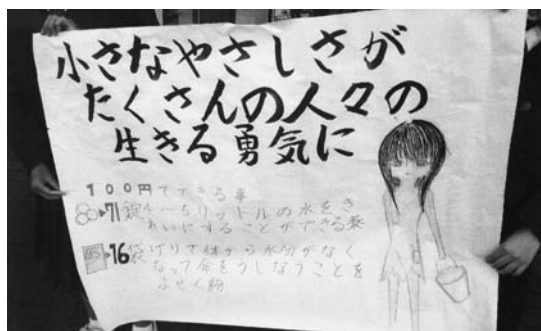 小さなやさしさが
たくさんの人々の
生きる勇気に
100円でできる事
71錠4〜5リットルの水をき
れいにすることができる薬
16袋げりで体から水分がなく
なって命をうしなうことを
ふせぐ粉